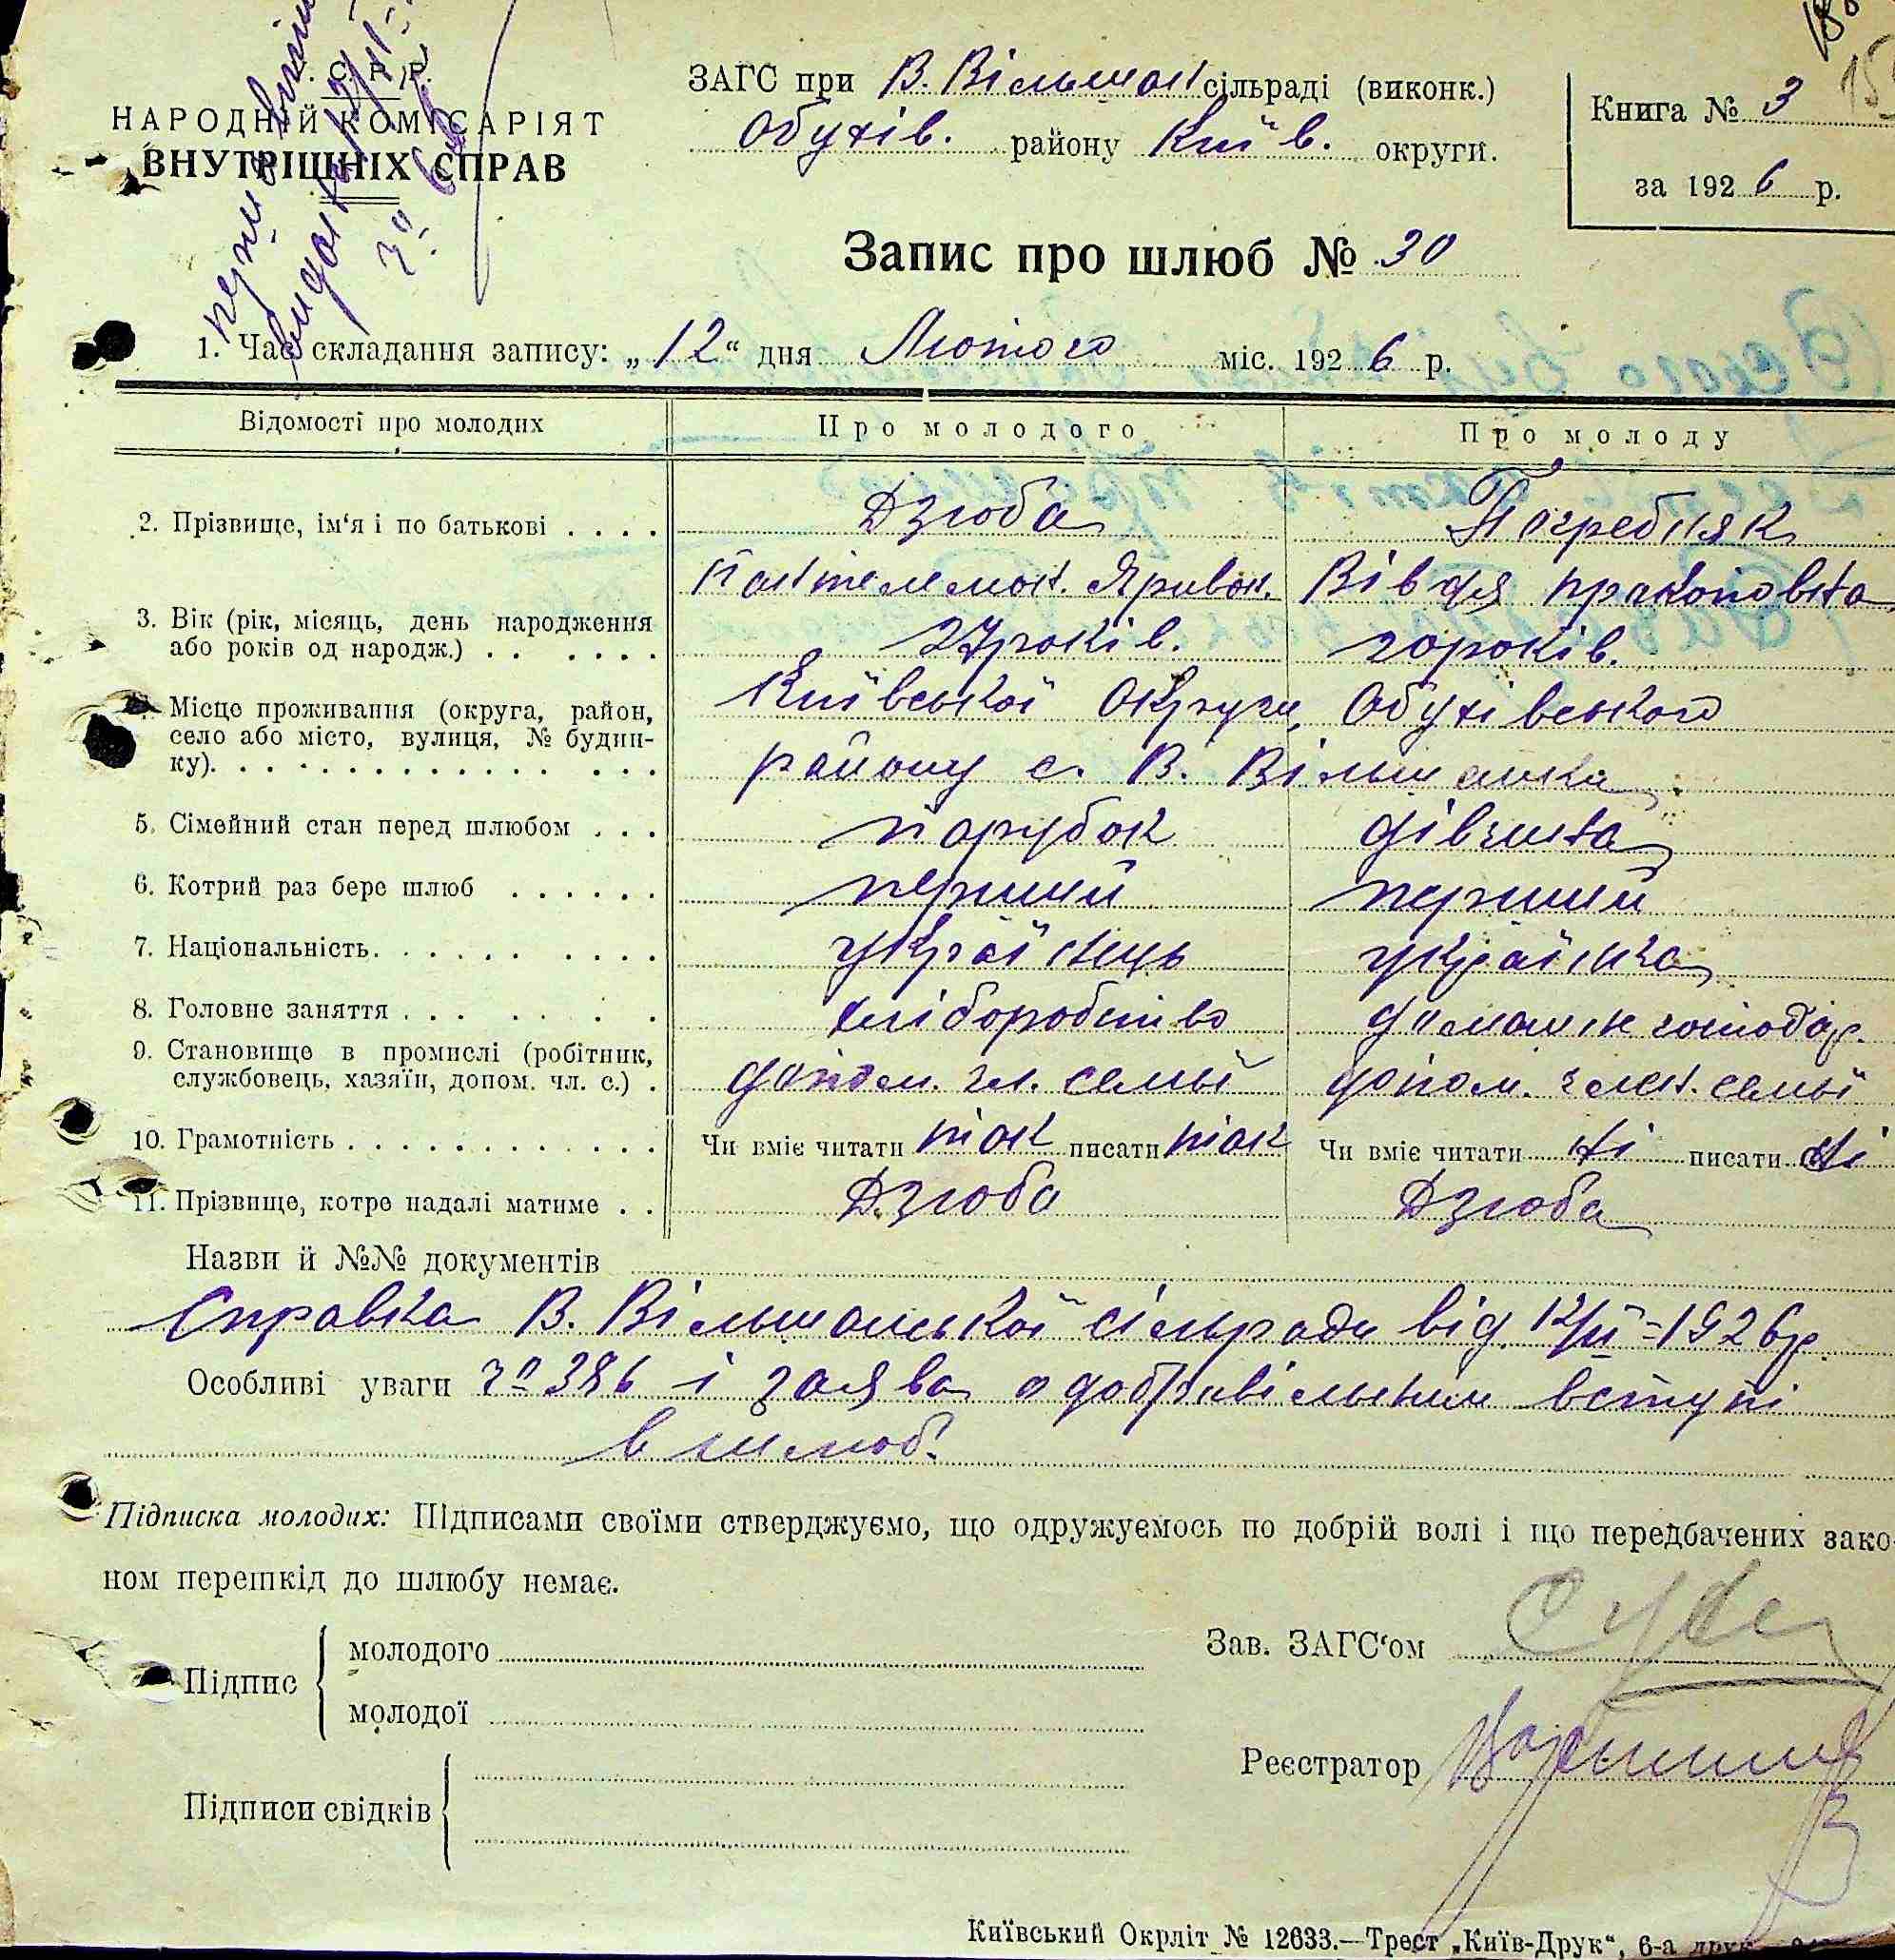 С. Р. Р.
НАРОДНІЙ КОМІСАРІЯТ
ВНУТРІШНІХ СПРАВ
ЗАГС при В. Вільшан сільраді (виконк.)
Обухів. району Київ. округи.
Книга № 3
за 1926 р.
Запис про шлюб № 30
1. Час складання запису: „12“ дня Лютого міс. 1926 р.
Відомості про молодих Про молодого Про молоду
2. Прізвище, ім‘я і по батькові . . . . Дзюба Погребняк
Пантелемон. Яривон. Вівдя Пракоповна
3. Вік (рік, місяць, день народження
або років од народж.) . . . . . . 27 років. 20 років.
4. Місце проживання (округа, район,
село або місто, вулиця, № будин-
ку). . . . . . . . . . . . . . . . Київської Округи, Обухівського
району с. В. Вільшанка
5. Сімейний стан перед шлюбом . . . парубок дівчина
6. Котрий раз бере шлюб . . . . . . перший перший
7. Національність. . . . . . . . . . українець українка
8. Головне заняття . . . . . . . хліборобство домашн. господар.
9. Становище в промислі (робітник,
службовець, хазяїн, допом. чл. с.) . допом. чл. семьї допом. член. семьї
10. Грамотність . . . . . . . . . . . . Чи вміє читати так писати так Чи вміє читати ні писати ні
11. Прізвище, котре надалі матиме . . Дзюба Дзюба
Назви й №№ документів
Справка В. Вільшанської сільради від 12/II-1926р.
Особливі уваги № 386 і заява о добровільним вступі
в шлюб.
Підписка молодих: Підписами своїми стверджуємо, що одружуємось по добрій волі і що передбачених зако-
ном перешкід до шлюбу немає.
Підпис
молодого
молодої
Зав. ЗАГС‘ом
Реєстратор
Підписи свідків
Київський Окрліт № 12633.—Трест „Київ-Друк“, 6-а друк.